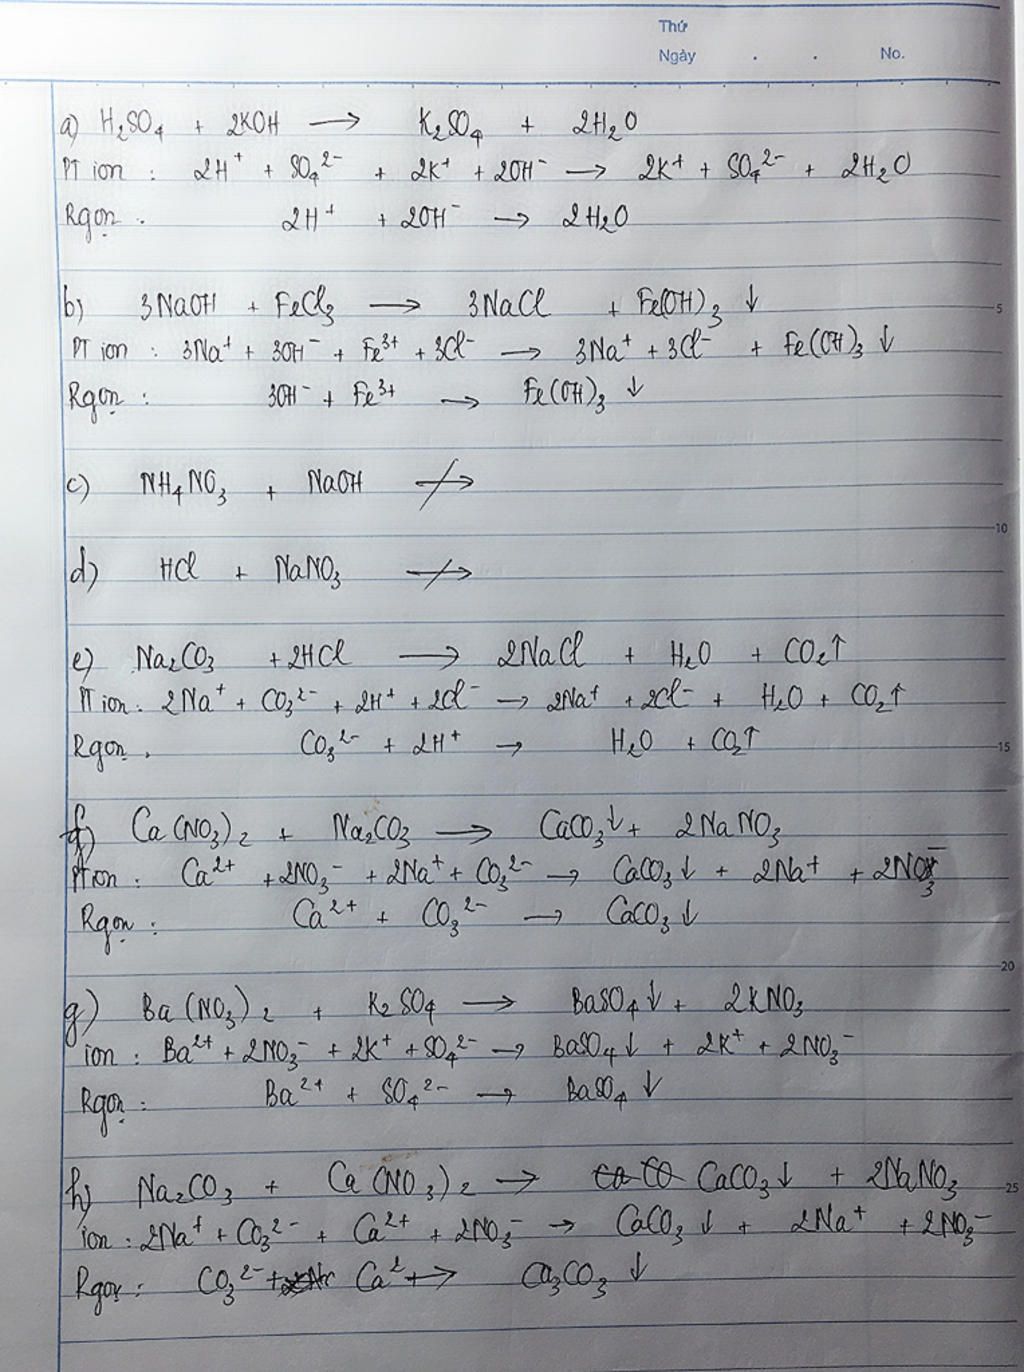 Thứ
Ngày . . No.
a) H₂SO₄ + 2KOH → K₂SO₄ + 2H₂O
PT ion : 2H⁺ + SO₄²⁻ + 2K⁺ + 2OH⁻ → 2K⁺ + SO₄²⁻ + 2H₂O
Rgọn : 2H⁺ + 2OH⁻ → 2H₂O
b) 3NaOH + FeCl₃ → 3NaCl + Fe(OH)₃ ↓
5
PT ion : 3Na⁺ + 3OH⁻ + Fe³⁺ + 3Cl⁻ → 3Na⁺ + 3Cl⁻ + Fe(OH)₃ ↓
Rgọn : 3OH⁻ + Fe³⁺ → Fe(OH)₃ ↓
c) NH₄NO₃ + NaOH ↛
10
d) HCl + NaNO₃ ↛
e) Na₂CO₃ + 2HCl → 2NaCl + H₂O + CO₂↑
PT ion : 2Na⁺ + CO₃²⁻ + 2H⁺ + 2Cl⁻ → 2Na⁺ + 2Cl⁻ + H₂O + CO₂↑
Rgọn : CO₃²⁻ + 2H⁺ → H₂O + CO₂↑
15
f) Ca(NO₃)₂ + Na₂CO₃ → CaCO₃↓ + 2NaNO₃
PT ion : Ca²⁺ + 2NO₃⁻ + 2Na⁺ + CO₃²⁻ → CaCO₃↓ + 2Na⁺ + 2NO₃⁻
Rgọn : Ca²⁺ + CO₃²⁻ → CaCO₃↓
20
g) Ba(NO₃)₂ + K₂SO₄ → BaSO₄↓ + 2KNO₃
ion : Ba²⁺ + 2NO₃⁻ + 2K⁺ + SO₄²⁻ → BaSO₄↓ + 2K⁺ + 2NO₃⁻
Rgọn : Ba²⁺ + SO₄²⁻ → BaSO₄ ↓
h) Na₂CO₃ + Ca(NO₃)₂ → CaCO₃↓ + 2NaNO₃
25
ion : 2Na⁺ + CO₃²⁻ + Ca²⁺ + 2NO₃⁻ → CaCO₃ ↓ + 2Na⁺ + 2NO₃⁻
Rgọn : CO₃²⁻ + Ca²⁺ → Ca₃CO₃ ↓